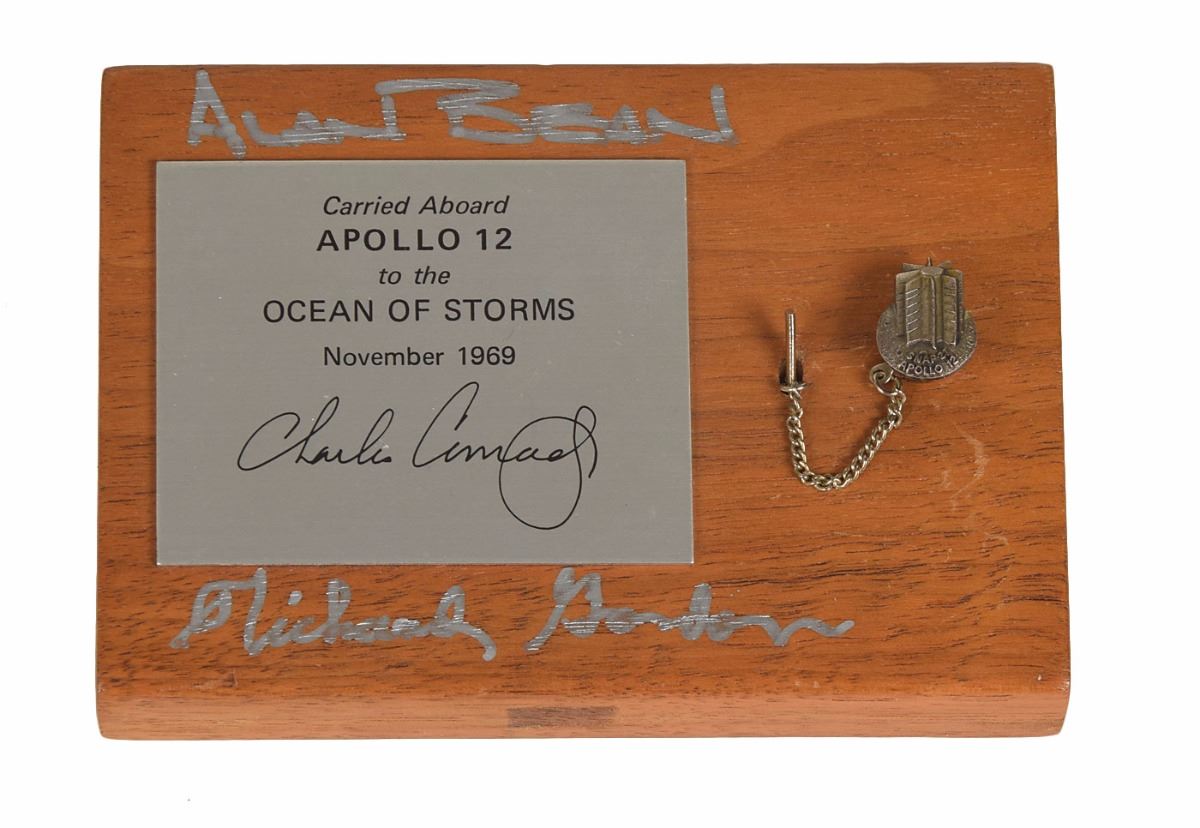 ALAN BEAN
Carried Aboard
APOLLO 12
to the
OCEAN OF STORMS
November 1969
Charles Conrad Jr
SNAP-27
APOLLO 12
Richard Gordon